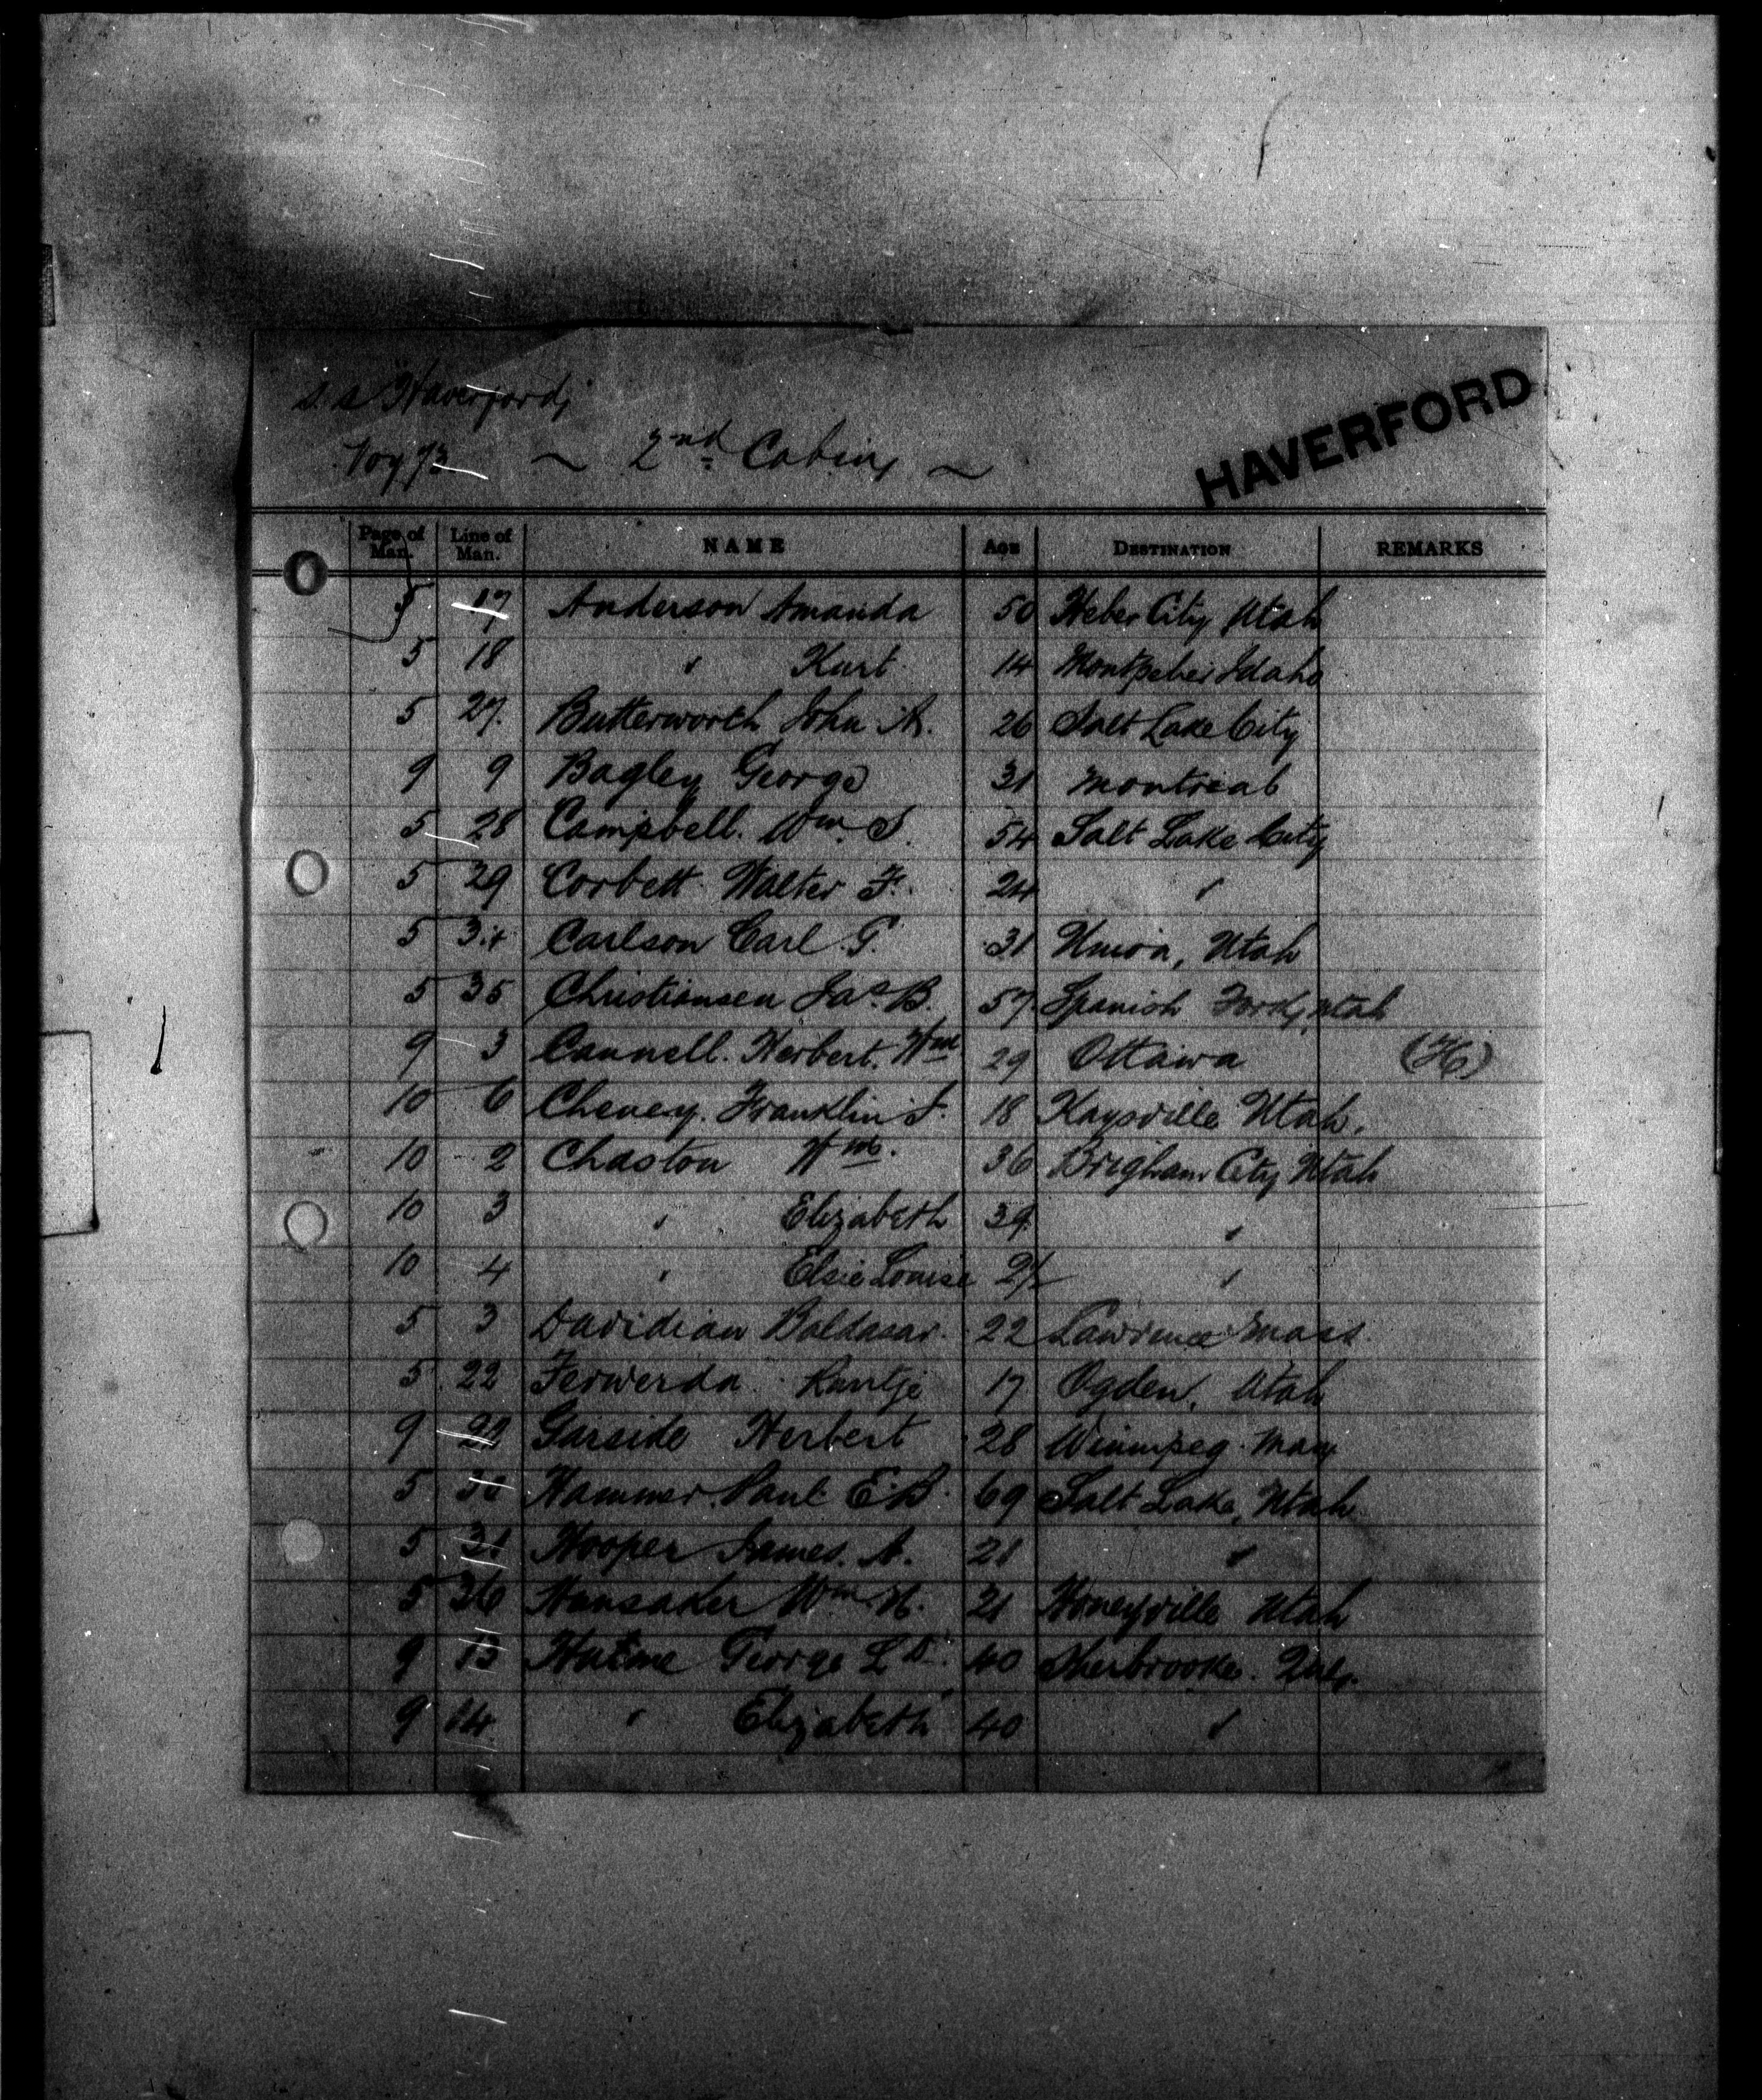 s.s Haverford,
HAVERFORD
Voy 73 ~ 2nd Cabin ~
Page of Man. Line of Man. NAME AGE DESTINATION REMARKS
5 17 Anderson Amanda 50 Heber City Utah
5 18 " Kurt 14 Montpelier Idaho
5 27. Butterworth John A. 26 Salt Lake City
9 9 Bagley George 31 Montreal
5 28 Campbell. Wm. S. 54 Salt Lake City
5 29 Corbett Walter F. 24 "
5 34 Carlson Carl G. 31 Union, Utah
5 35 Christiansen Jas B. 57 Spanish Fork, Utah
9 3 Cannell. Herbert. Wm 29 Ottawa (H)
10 6 Cheney. Franklin 18 Kaysville Utah.
10 2 Chaston Wm. 36 Brigham City Utah
10 3 " Elizabeth 39 "
10 4 " Elsie Louise "
5 3 Davidian Baldasar. 22 Lawrence Mass.
5 22 Ferwerda. Rantje 17 Ogden, Utah
9 Garside Herbert 28 Winnipeg. Man
5 Hammer. Paul E.B. 69 Salt Lake, Utah
5 31 Hooper James. A. 21 "
5 36 Hunsaker Wm H. 21 Honeyville Utah
9 13 George Ld. 40 Sherbrooke. Que.
9 14. " Elizabeth 40 "